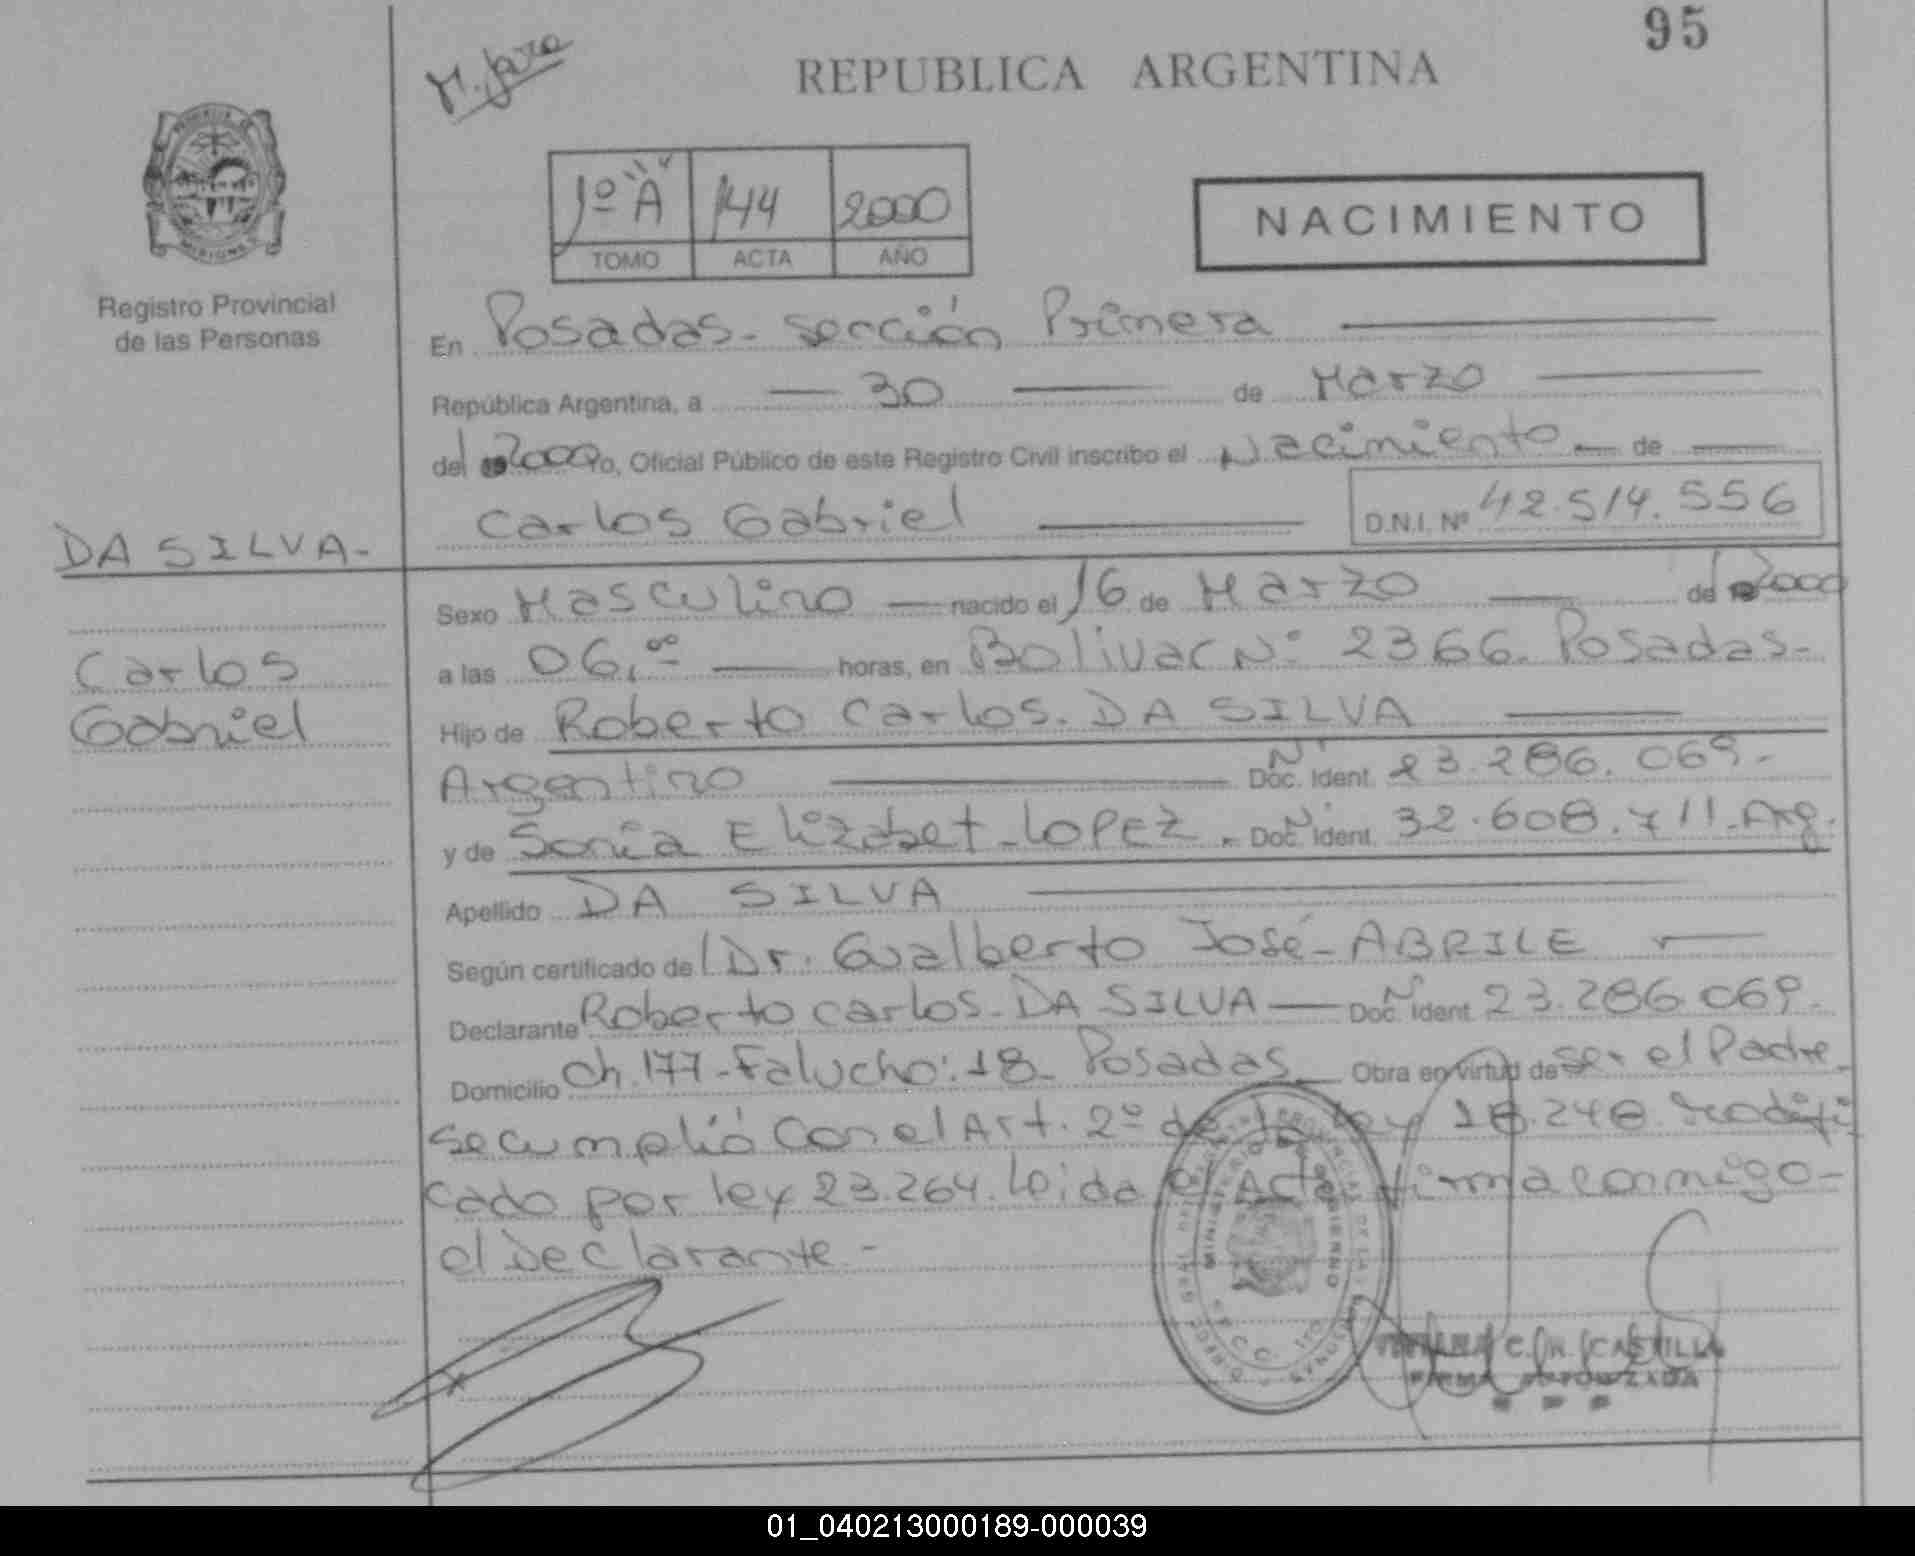 95
REPUBLICA ARGENTINA
1º "A" 144 2000
TOMO ACTA AÑO
NACIMIENTO
Registro Provincial
de las Personas
En Posadas - sección Primera
República Argentina, a 30 de Marzo
del 2000 Yo, Oficial Público de este Registro Civil inscribo el Nacimiento de
Carlos Gabriel D.N.I. Nº 42.514.556
DA SILVA -
Carlos
Gabriel
Sexo Masculino nacido el 16 de Marzo del 2000
a las 06,00 horas, en Bolivar Nº 2366. Posadas -
Hijo de Roberto Carlos. DA SILVA
Argentino Doc. Ident. Nº 23.286.069.-
y de Sonia Elizabet - LOPEZ. Doc. Ident. Nº 32.608.711 - Arg.
Apellido DA SILVA
Según certificado del Dr. Gualberto José - ABRILE
Declarante Roberto Carlos - DA SILVA Doc. Ident. Nº 23.286.069.
Domicilio Ch. 177 - Falucho: 18 - Posadas Obra en virtud de ser el Padre
se cumplió con el Art. 2º de la ley 18.248. Modifi
cado por ley 23.264. Leida el Acta firma conmigo -
el declarante -
C. CASTILLO
FIRMA AUTORIZADA
01_040213000189-000039